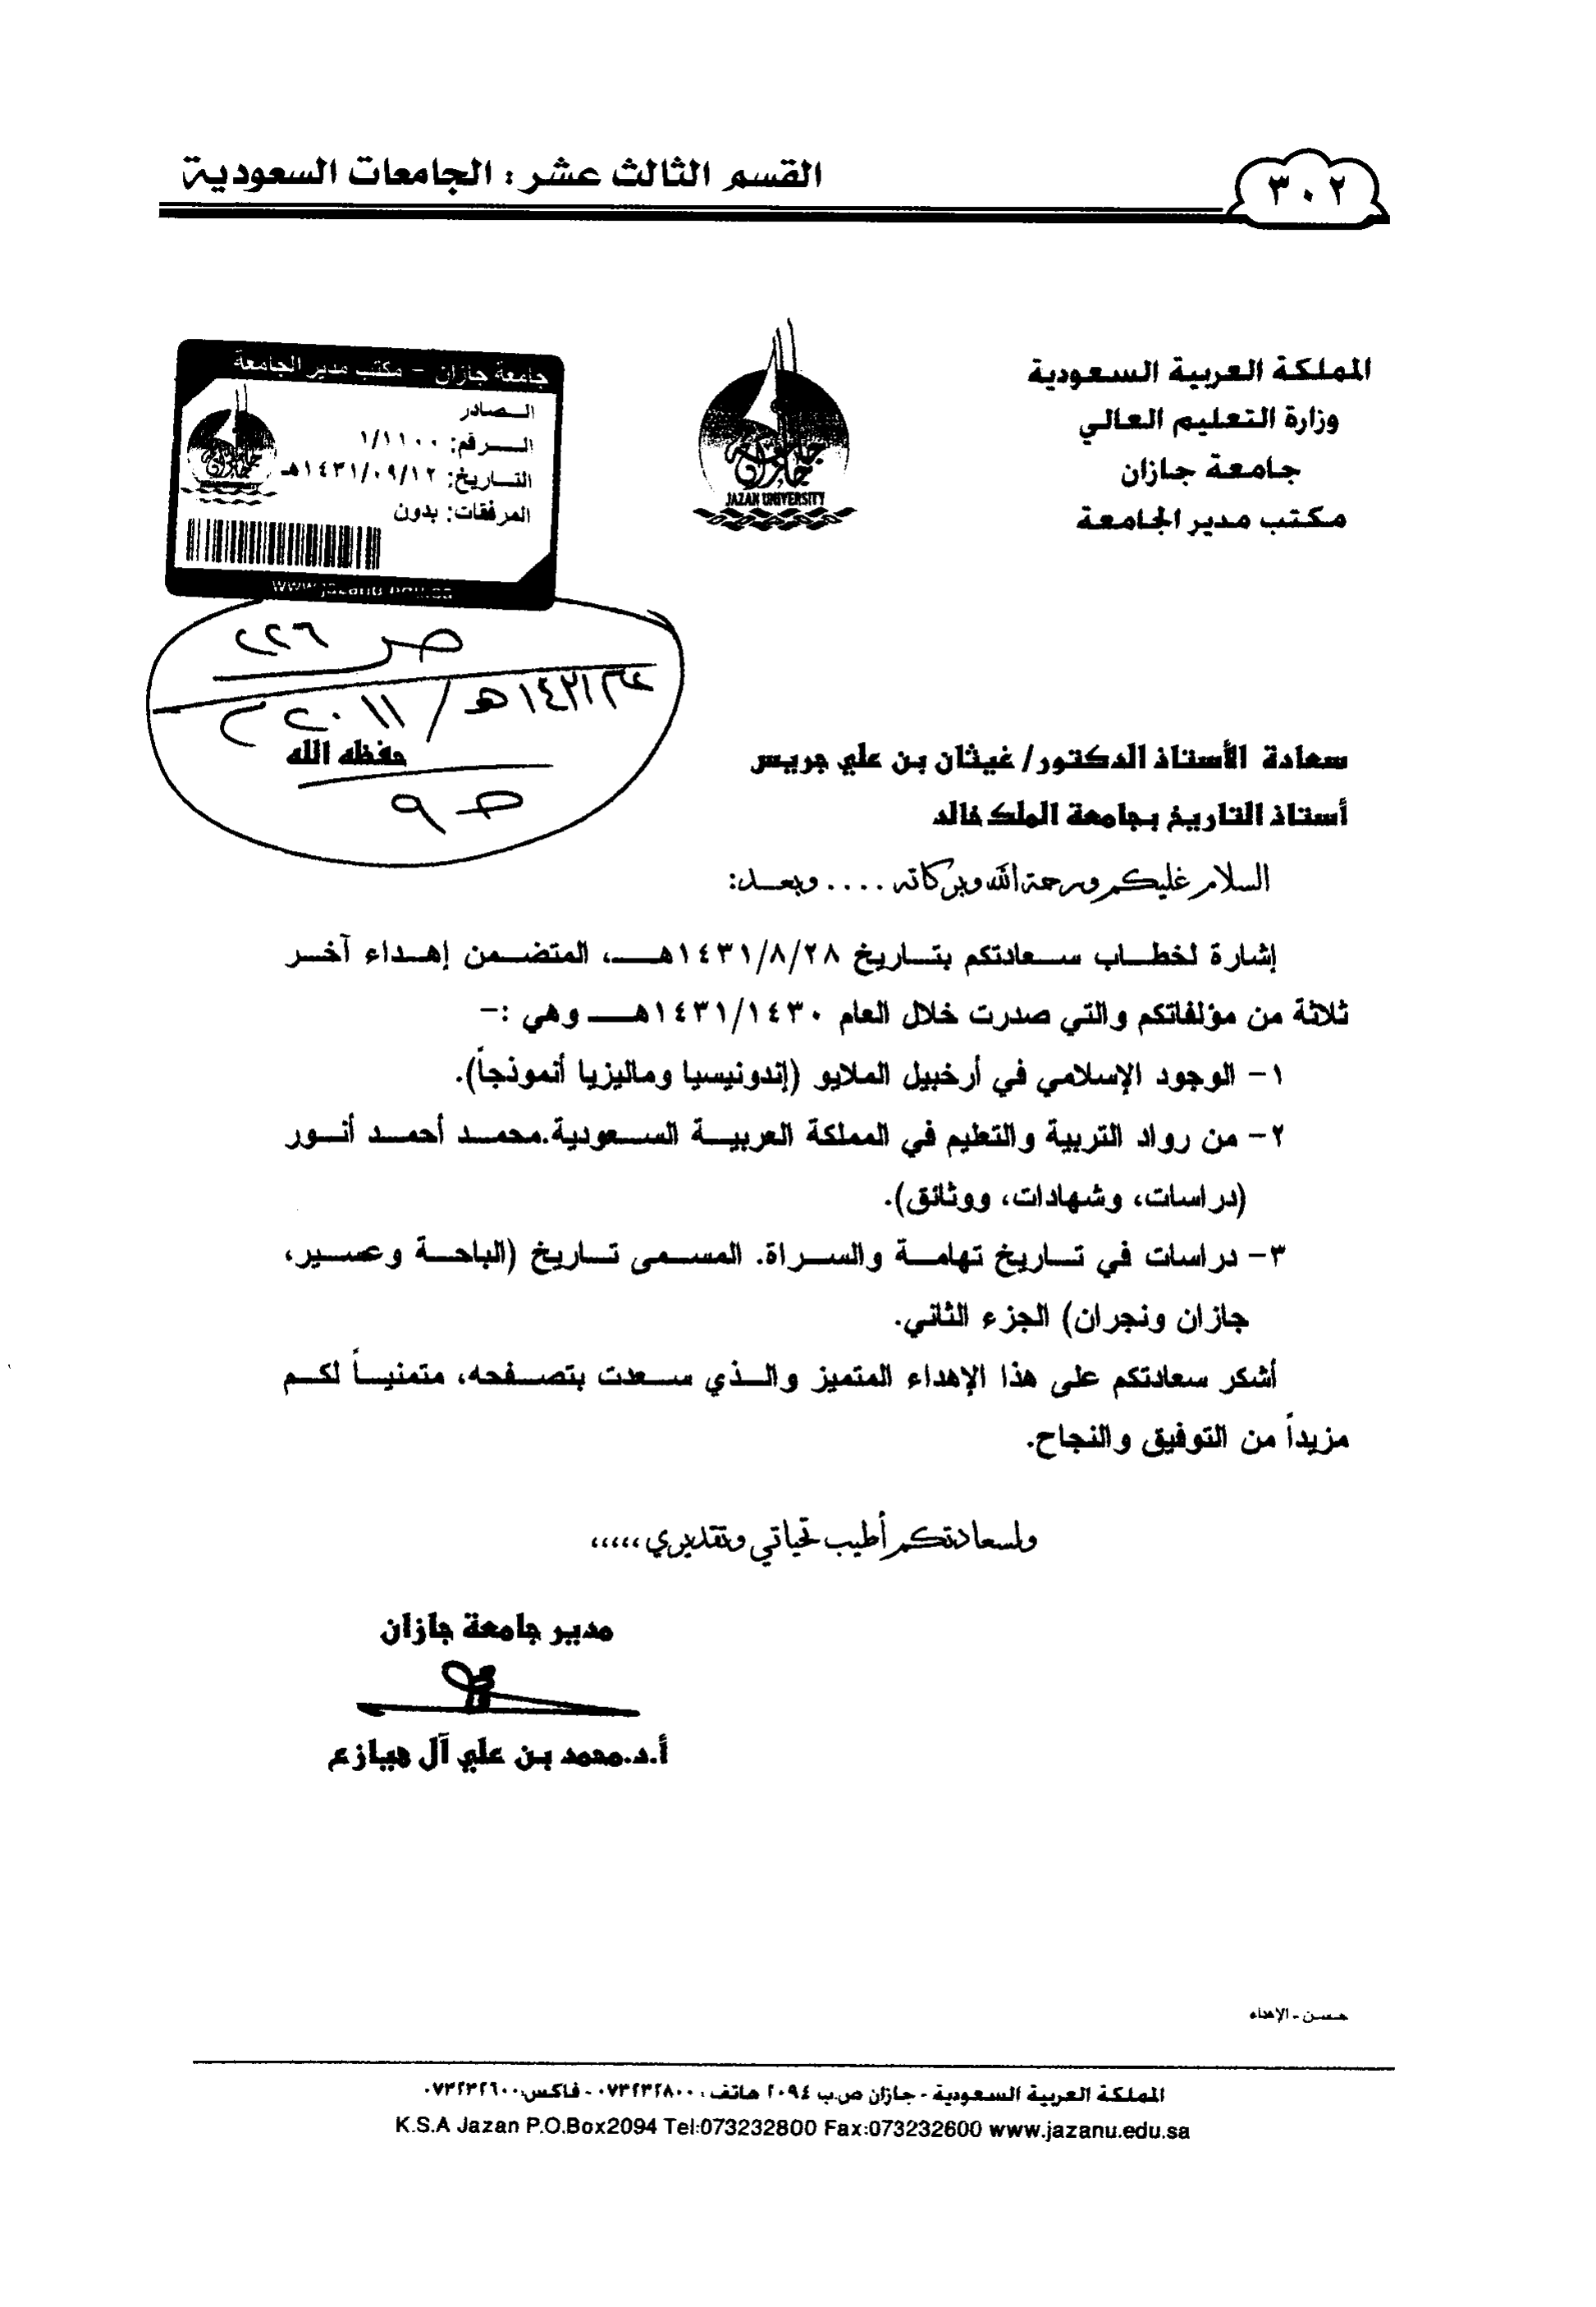 ٣٠٢
القسم الثالث عشر : الجامعات السعودية
المملكة العربية السعودية
وزارة التعليم العالي
جامعة جازان
مكتب مدير الجامعة
JAZAN UNIVERSITY
جامعة جازان - مكتب مدير الجامعة
الصادر
الرقم: ١/١١٠٠
التاريخ: ١٤٣١/٠٩/١٢هـ
المرفقات: بدون
www.jazanu.edu.sa
ص ٢٢٦
١٤٣١هـ / ٢٠١١م
ص ٩
سعادة الأستاذ الدكتور/ غيثان بن علي جريس حفظه الله
أستاذ التاريخ بجامعة الملك خالد
السلام عليكم ورحمة الله وبركاته .... وبعد:
إشارة لخطاب سعادتكم بتاريخ ١٤٣١/٨/٢٨هـ، المتضمن إهداء آخر
ثلاثة من مؤلفاتكم والتي صدرت خلال العام ١٤٣١/١٤٣٠هـ وهي :-
١- الوجود الإسلامي في أرخبيل الملايو (إندونيسيا وماليزيا أنموذجاً).
٢- من رواد التربية والتعليم في المملكة العربية السعودية.محمد أحمد أنور
(دراسات، وشهادات، ووثائق).
٣- دراسات في تاريخ تهامة والسراة. المسمى تاريخ (الباحة وعسير،
جازان ونجران) الجزء الثاني.
أشكر سعادتكم على هذا الإهداء المتميز والذي سعدت بتصفحه، متمنياً لكم
مزيداً من التوفيق والنجاح.
ولسعادتكم أطيب تحياتي وتقديري ،،،،،
مدير جامعة جازان
أ.د.محمد بن علي آل هيازع
حسن - الإهداء
المملكة العربية السعودية - جازان ص.ب ٢٠٩٤ هاتف : ٠٧٣٢٣٢٨٠٠ - فاكس:٠٧٣٢٣٢٦٠٠
K.S.A Jazan P.O.Box2094 Tel:073232800 Fax:073232600 www.jazanu.edu.sa